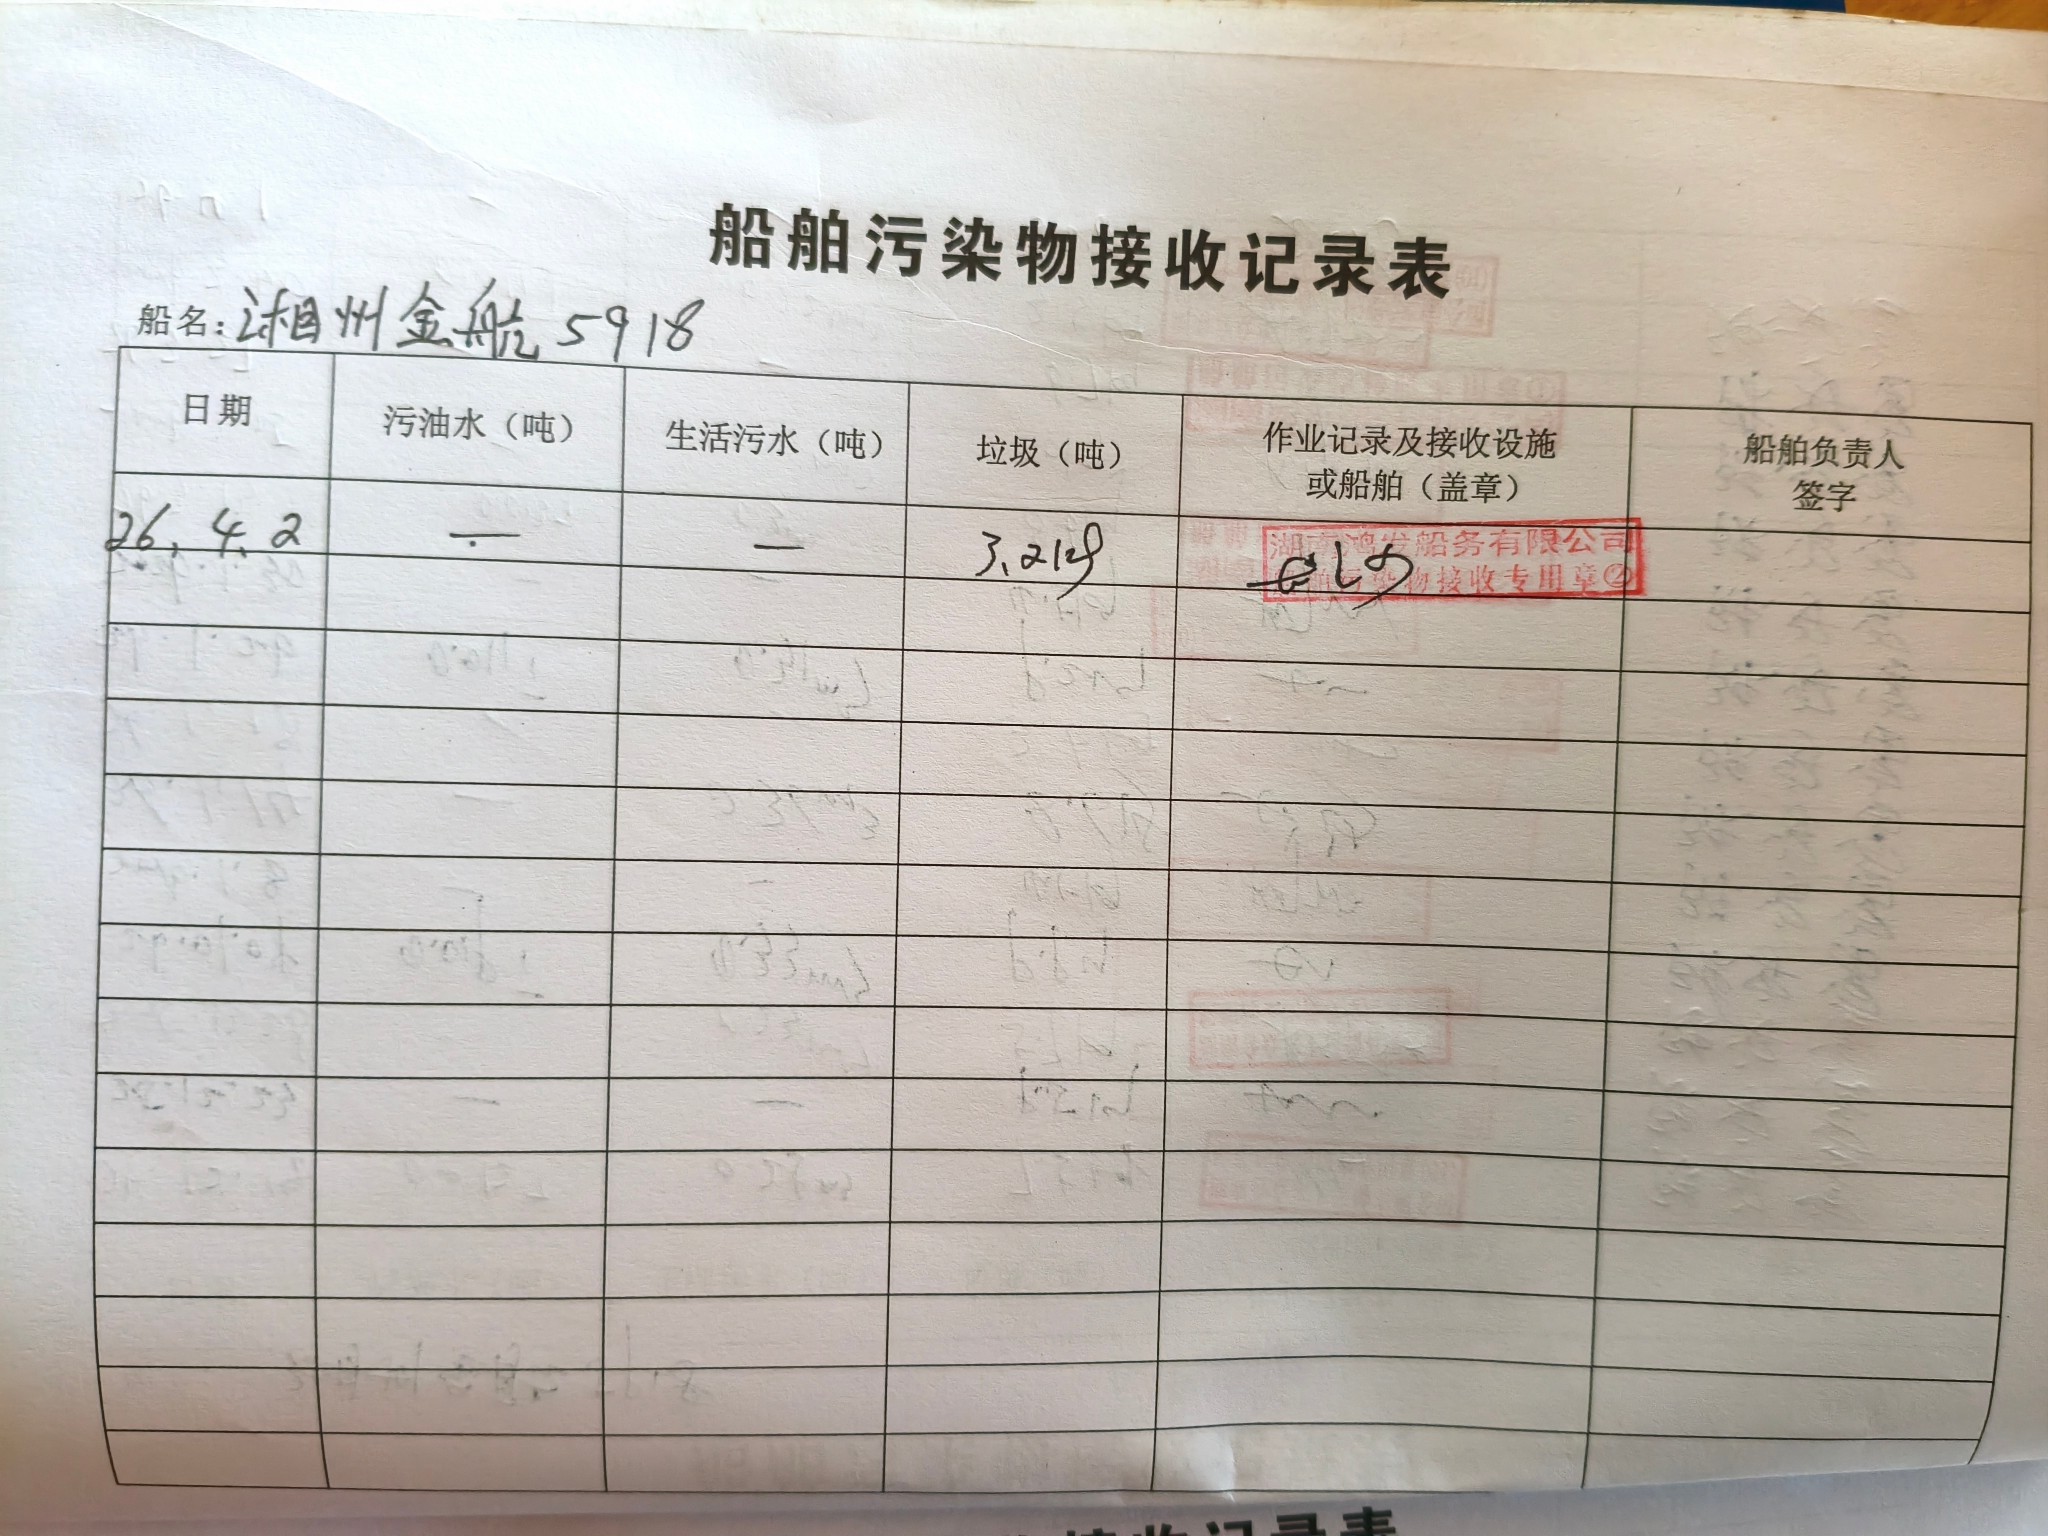 船舶污染物接收记录表
船名：湘州金航5918
日期 污油水（吨） 生活污水（吨） 垃圾（吨） 作业记录及接收设施或船舶（盖章） 船舶负责人签字
26.4.2 — — 3.2
湖南鸿发船务有限公司
船舶污染物接收专用章②
接收记录表